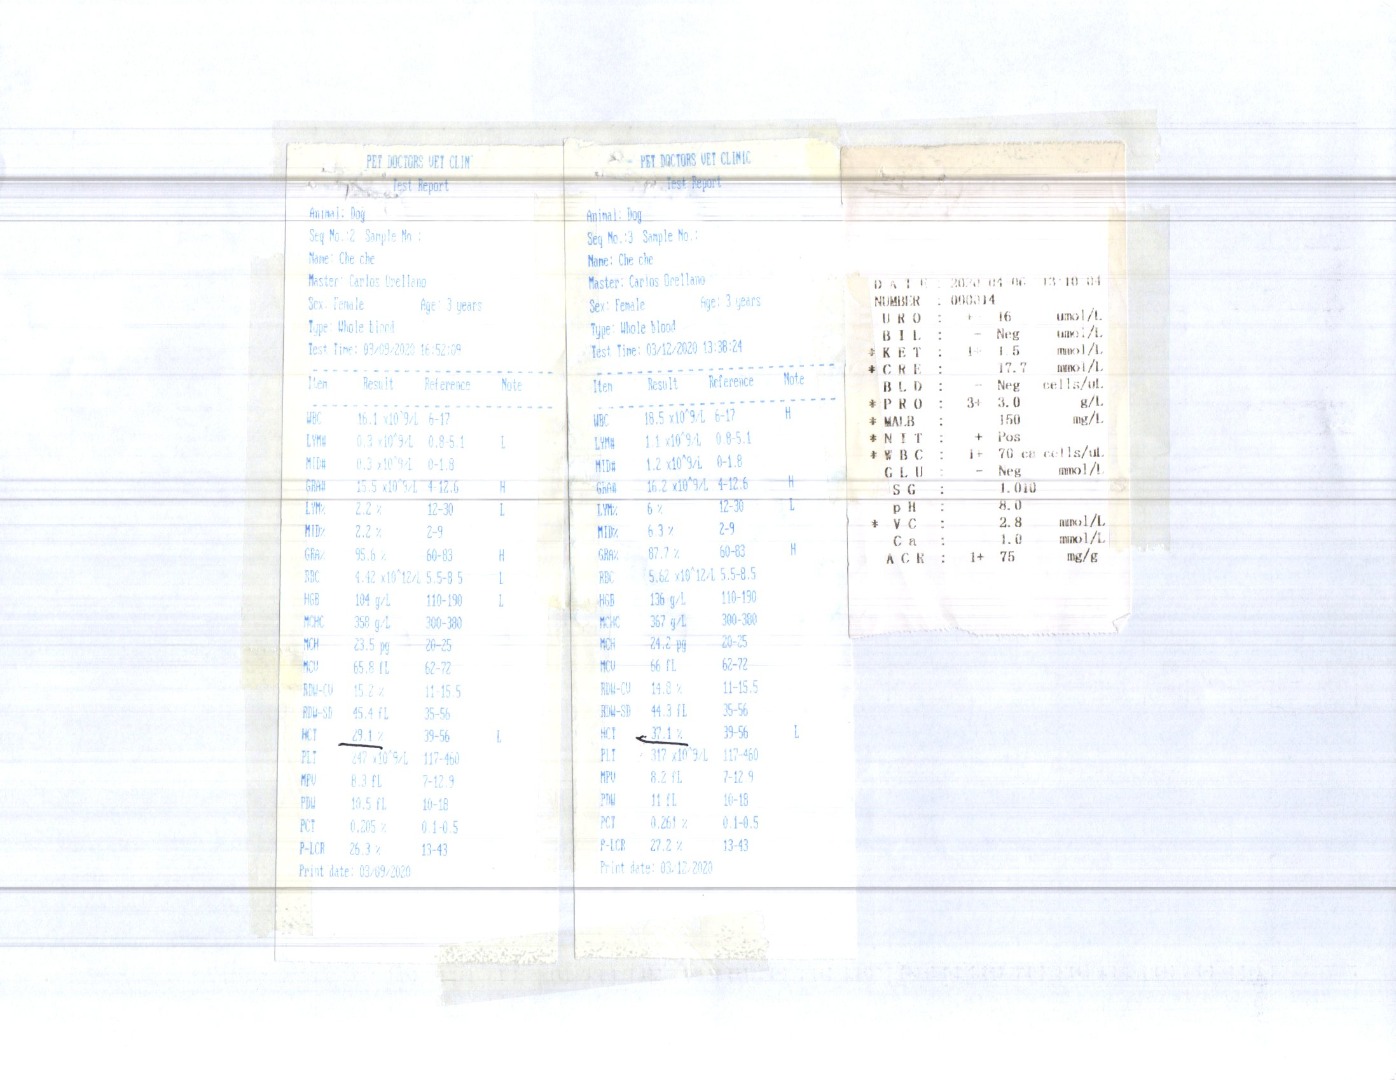 PET DOCTORS VET CLIN
Test Report
Animal: Dog
Seq No.:2 Sample No.:
Name: Che che
Master: Carlos Orellano
Sex: Female Age: 3 years
Type: Whole blood
Test Time: 03/09/2020 16:52:09
Item Result Reference Note
WBC 16.1 x10^9/L 6-17
LYM# 0.3 x10^9/L 0.8-5.1 L
MID# 0.3 x10^9/L 0-1.8
GRA# 15.5 x10^9/L 4-12.6 H
LYM% 2.2 % 12-30 L
MID% 2.2 % 2-9
GRA% 95.6 % 60-83 H
RBC 4.42 x10^12/L 5.5-8.5 L
HGB 104 g/L 110-190 L
MCHC 358 g/L 300-380
MCH 23.5 pg 20-25
MCV 65.8 fL 62-72
RDW-CV 15.2 % 11-15.5
RDW-SD 45.4 fL 35-56
HCT 29.1 % 39-56 L
PLT 247 x10^9/L 117-460
MPV 8.3 fL 7-12.9
PDW 10.5 fL 10-18
PCT 0.205 % 0.1-0.5
P-LCR 26.3 % 13-43
Print date: 03/09/2020
PET DOCTORS VET CLINIC
Test Report
Animal: Dog
Seq No.:3 Sample No.:
Name: Che che
Master: Carlos Orellano
Sex: Female Age: 3 years
Type: Whole blood
Test Time: 03/12/2020 13:38:24
Item Result Reference Note
WBC 18.5 x10^9/L 6-17 H
LYM# 1.1 x10^9/L 0.8-5.1
MID# 1.2 x10^9/L 0-1.8
GRA# 16.2 x10^9/L 4-12.6 H
LYM% 6 % 12-30 L
MID% 6.3 % 2-9
GRA% 87.7 % 60-83 H
RBC 5.62 x10^12/L 5.5-8.5
HGB 136 g/L 110-190
MCHC 367 g/L 300-380
MCH 24.2 pg 20-25
MCV 66 fL 62-72
RDW-CV 14.8 % 11-15.5
RDW-SD 44.3 fL 35-56
HCT 37.1 % 39-56 L
PLT 317 x10^9/L 117-460
MPV 8.2 fL 7-12.9
PDW 11 fL 10-18
PCT 0.261 % 0.1-0.5
P-LCR 27.2 % 13-43
Print date: 03/12/2020
DATE: 2020-04-06 13:10:04
NUMBER : 000314
URO : + 16 umol/L
BIL : - Neg umol/L
*KET : 1+ 1.5 mmol/L
*CRE : 17.7 mmol/L
BLD : - Neg cells/uL
*PRO : 3+ 3.0 g/L
*MALB : 150 mg/L
*NIT : + Pos
*WBC : 1+ 70 ca cells/uL
GLU : - Neg mmol/L
SG : 1.010
pH : 8.0
* VC : 2.8 mmol/L
Ca : 1.0 mmol/L
ACR : 1+ 75 mg/g